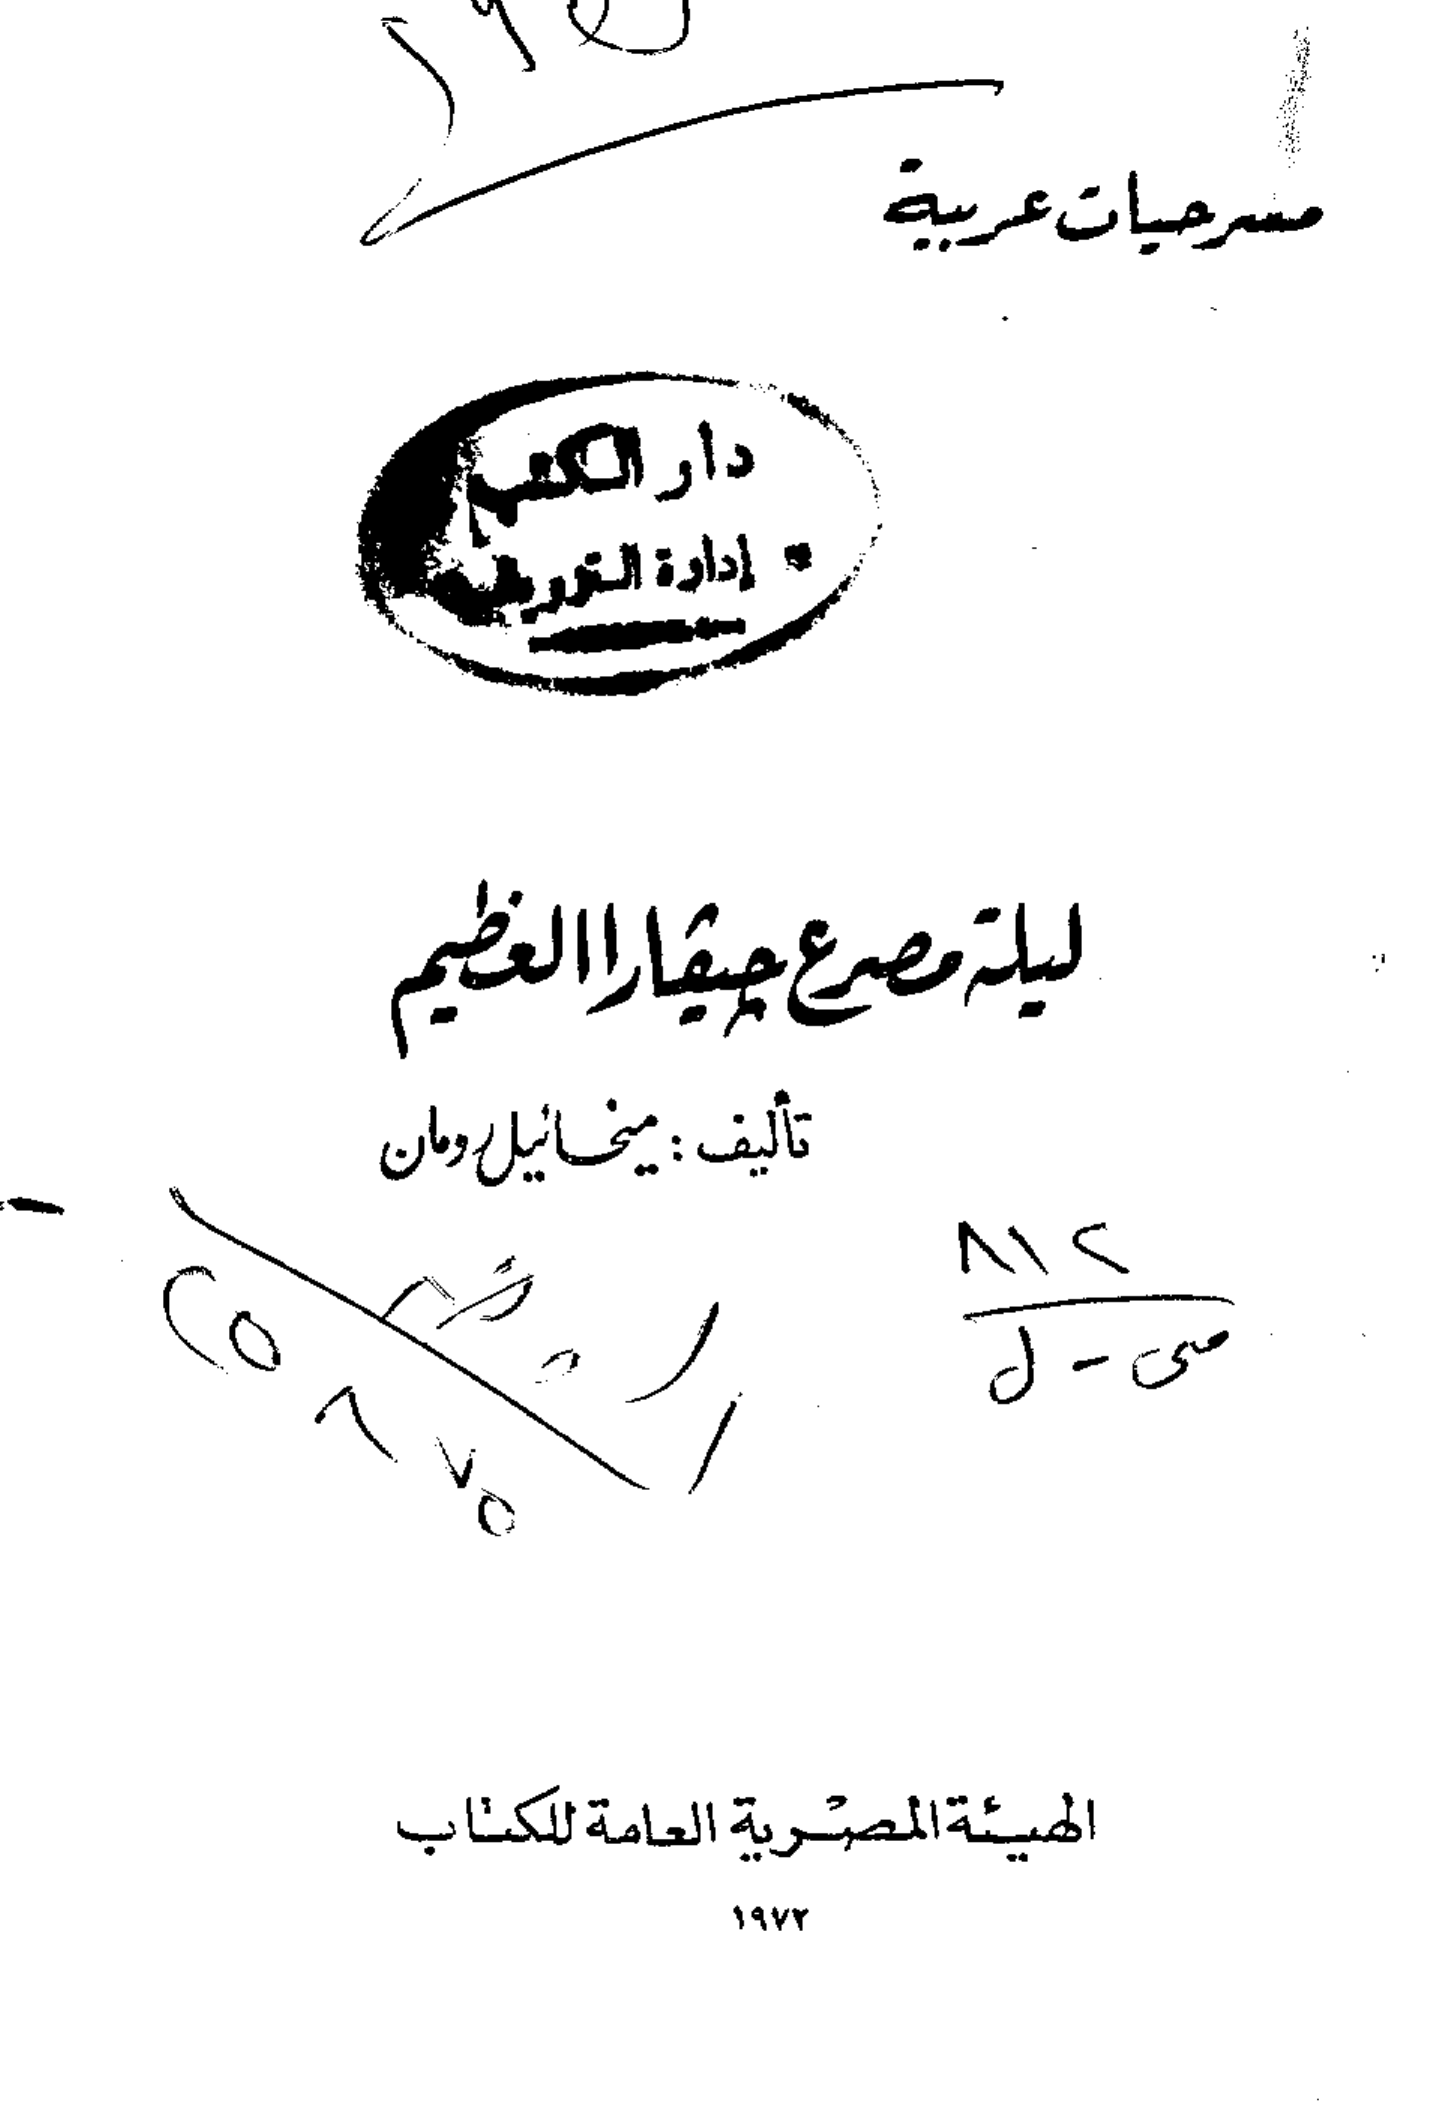 مسرحيات عربية
دار الكتب
إدارة التوريد
ليلة مصرع چيڤارا العظيم
تأليف : ميخائيل رومان
٨١٢
ص - ل
٢٥٨٧٥
الهيئة المصرية العامة للكتاب
١٩٧٢